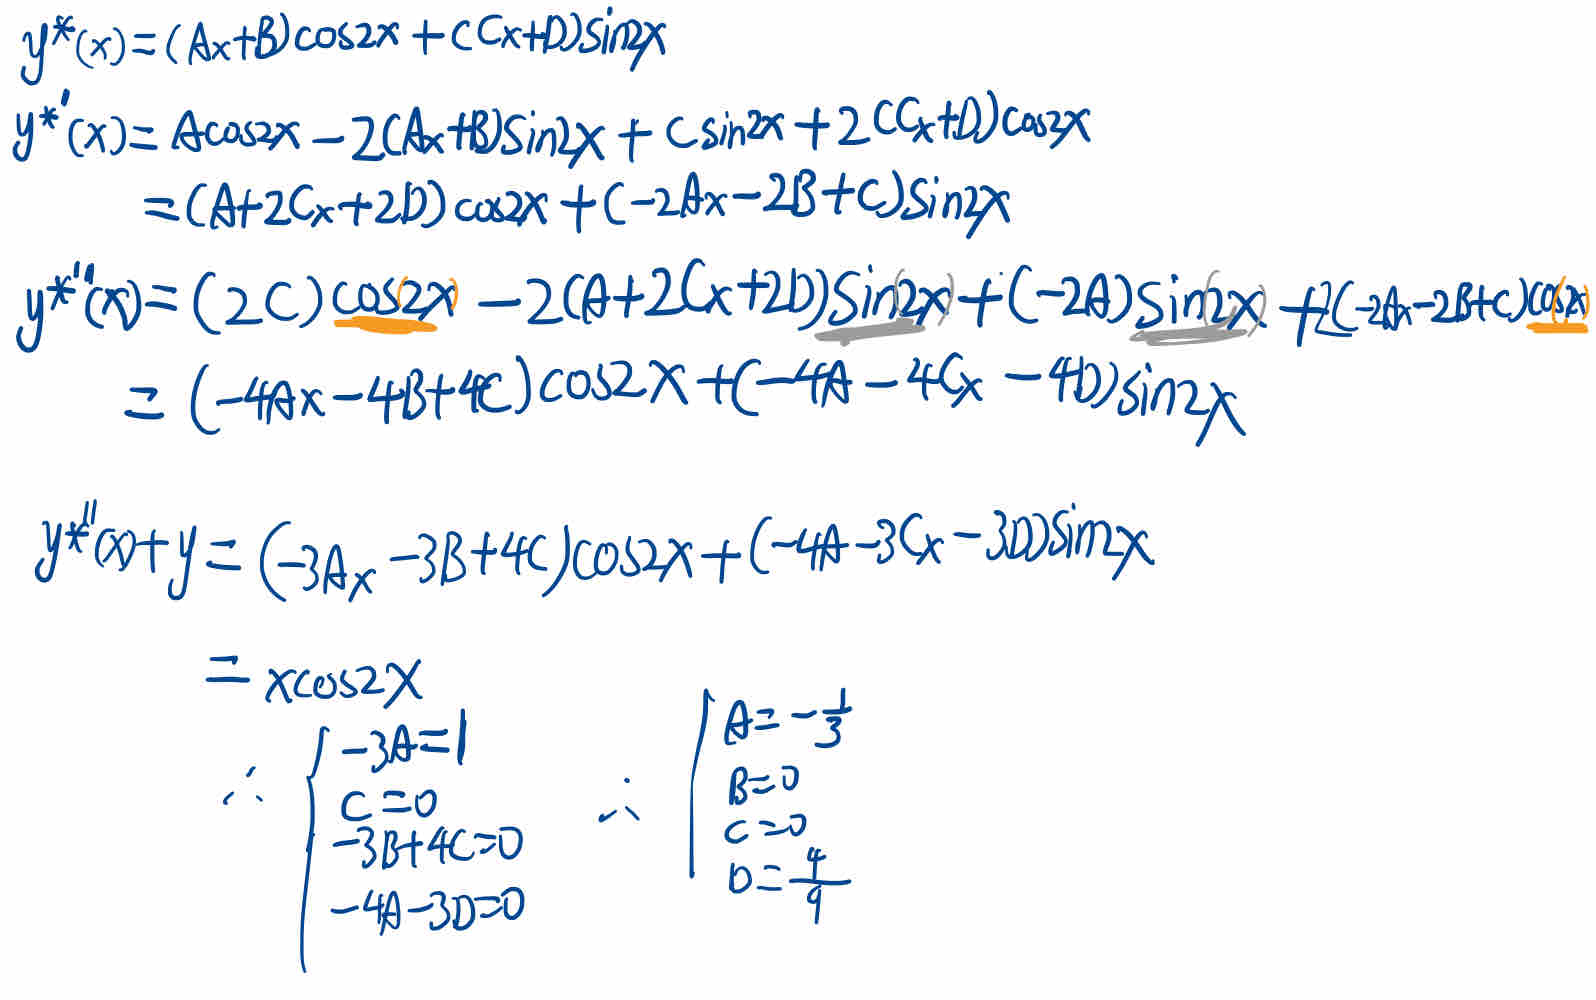 y*(x)=(Ax+B)cos2x+(Cx+D)sin2x
y*'(x)=Acos2x-2(Ax+B)sin2x+Csin2x+2(Cx+D)cos2x
=(A+2Cx+2D)cos2x+(-2Ax-2B+C)sin2x
y*''(x)=(2C)cos(2x)-2(A+2Cx+2D)sin(2x)+(-2A)sin(2x)+2(-2Ax-2B+C)cos(2x)
=(-4Ax-4B+4C)cos2x+(-4A-4Cx-4D)sin2x
y*''(x)+y=(-3Ax-3B+4C)cos2x+(-4A-3Cx-3D)sin2x
=xcos2x
∴ { -3A=1
C=0
-3B+4C=0
-4A-3D=0
∴ { A=-1/3
B=0
C=0
D=4/9